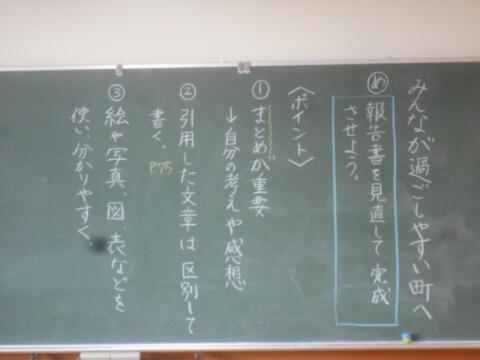 みんなが過ごしやすい町へ
め 報告書を見直して、完成
させよう。
〈ポイント〉
① まとめが重要
↓自分の考えや感想
② 引用した文章は、区別して
書く。 P75
③ 絵や写真、図、表などを
使い、分かりやすく。